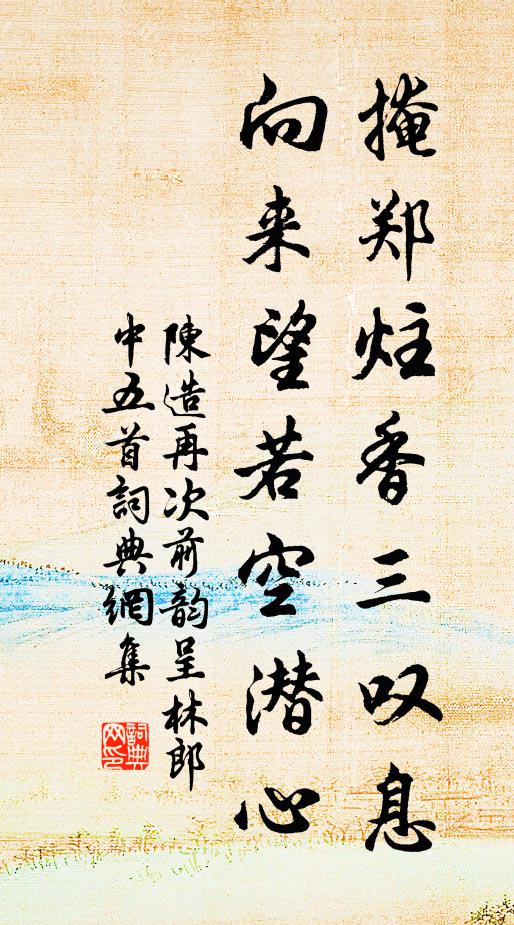 掩郑炷香三叹息
向来望若空潜心
陳造再次前韵呈林郎
中五首詞典網集
詞典网印